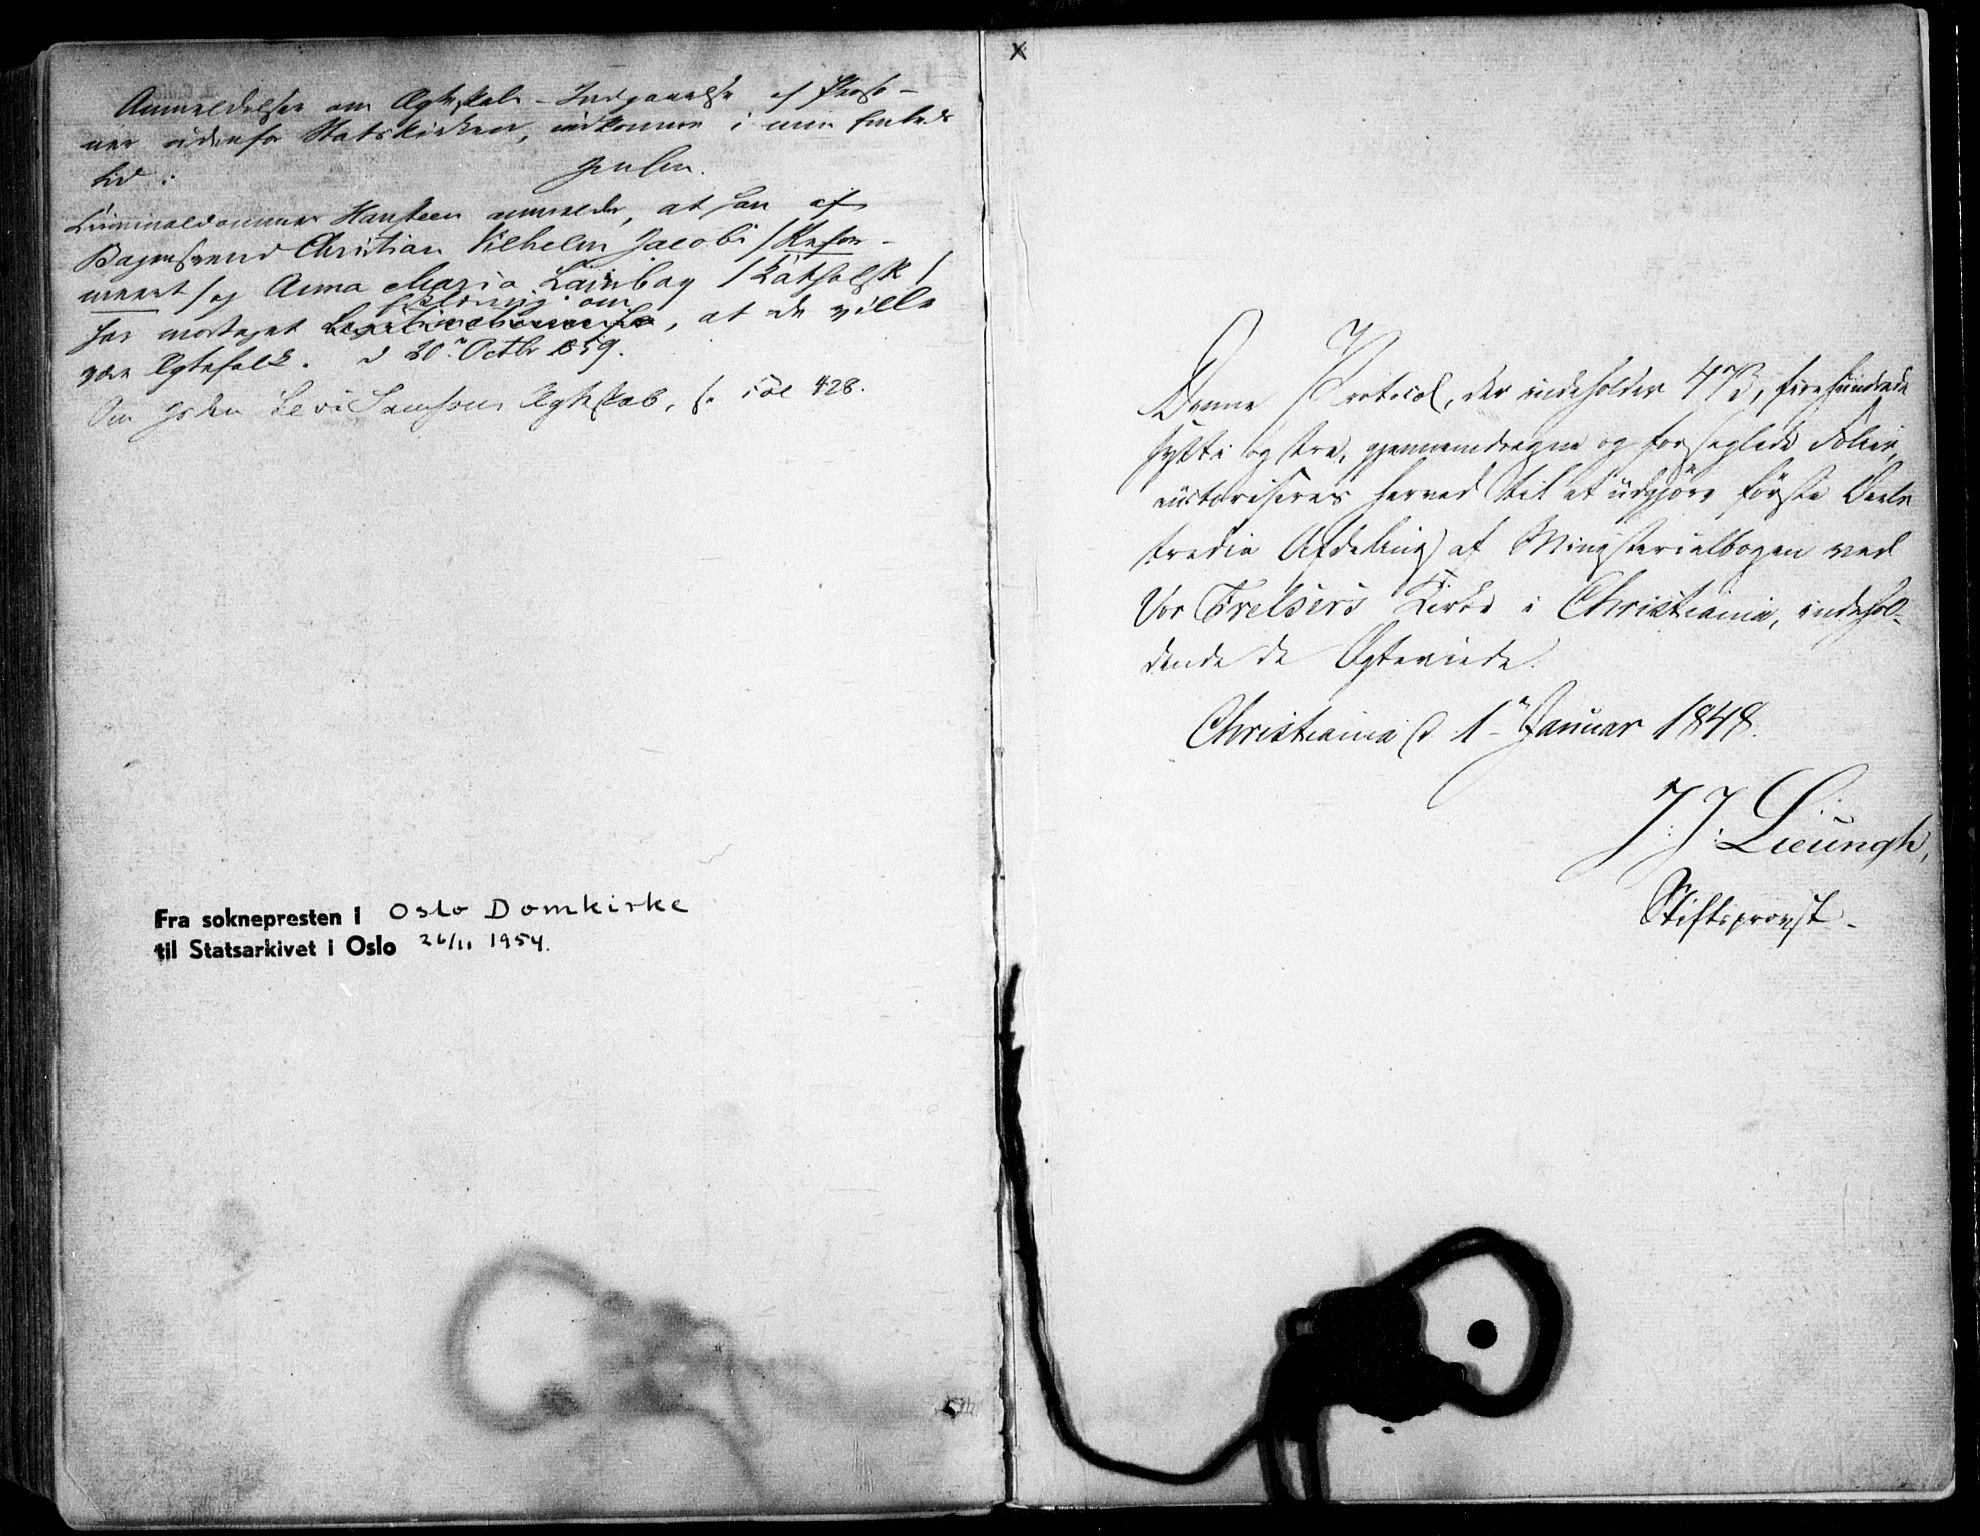 Anmeldelser om Ægteskabs-Indgaaelse af Perso-
ner udenfor Statskirken, indkomne i min Embeds
tid:
Criminaldommer Hansteen anmelder, at han af
Bagersvend Christian Vilhelm Jacobi /Refor-
meert/ og Anna Maria /Katholsk/
har modtaget Erklæring om, at de ville
være Ægtefolk. d 20de Octbr 1859.
Om Jøden Levi Samsons Ægteskab, s. Fol 428.
Fra soknepresten i Oslo Domkirke
til Statsarkivet i Oslo 26/11 1954.
x
Denne Protocol, der indeholder 473, firehundrede
sytti og tre, gjennemdragne og forseglede Folier,
autoriseres herved til at udgjøre første Deels
tredie Afdeling af Ministerialbogen ved
Vor Frelsers Kirke i Christiania, indehol-
dende de Ægteviede.
Christiania d 1ste Januar 1848.
J. J. Lieungh,
Stiftsprovst